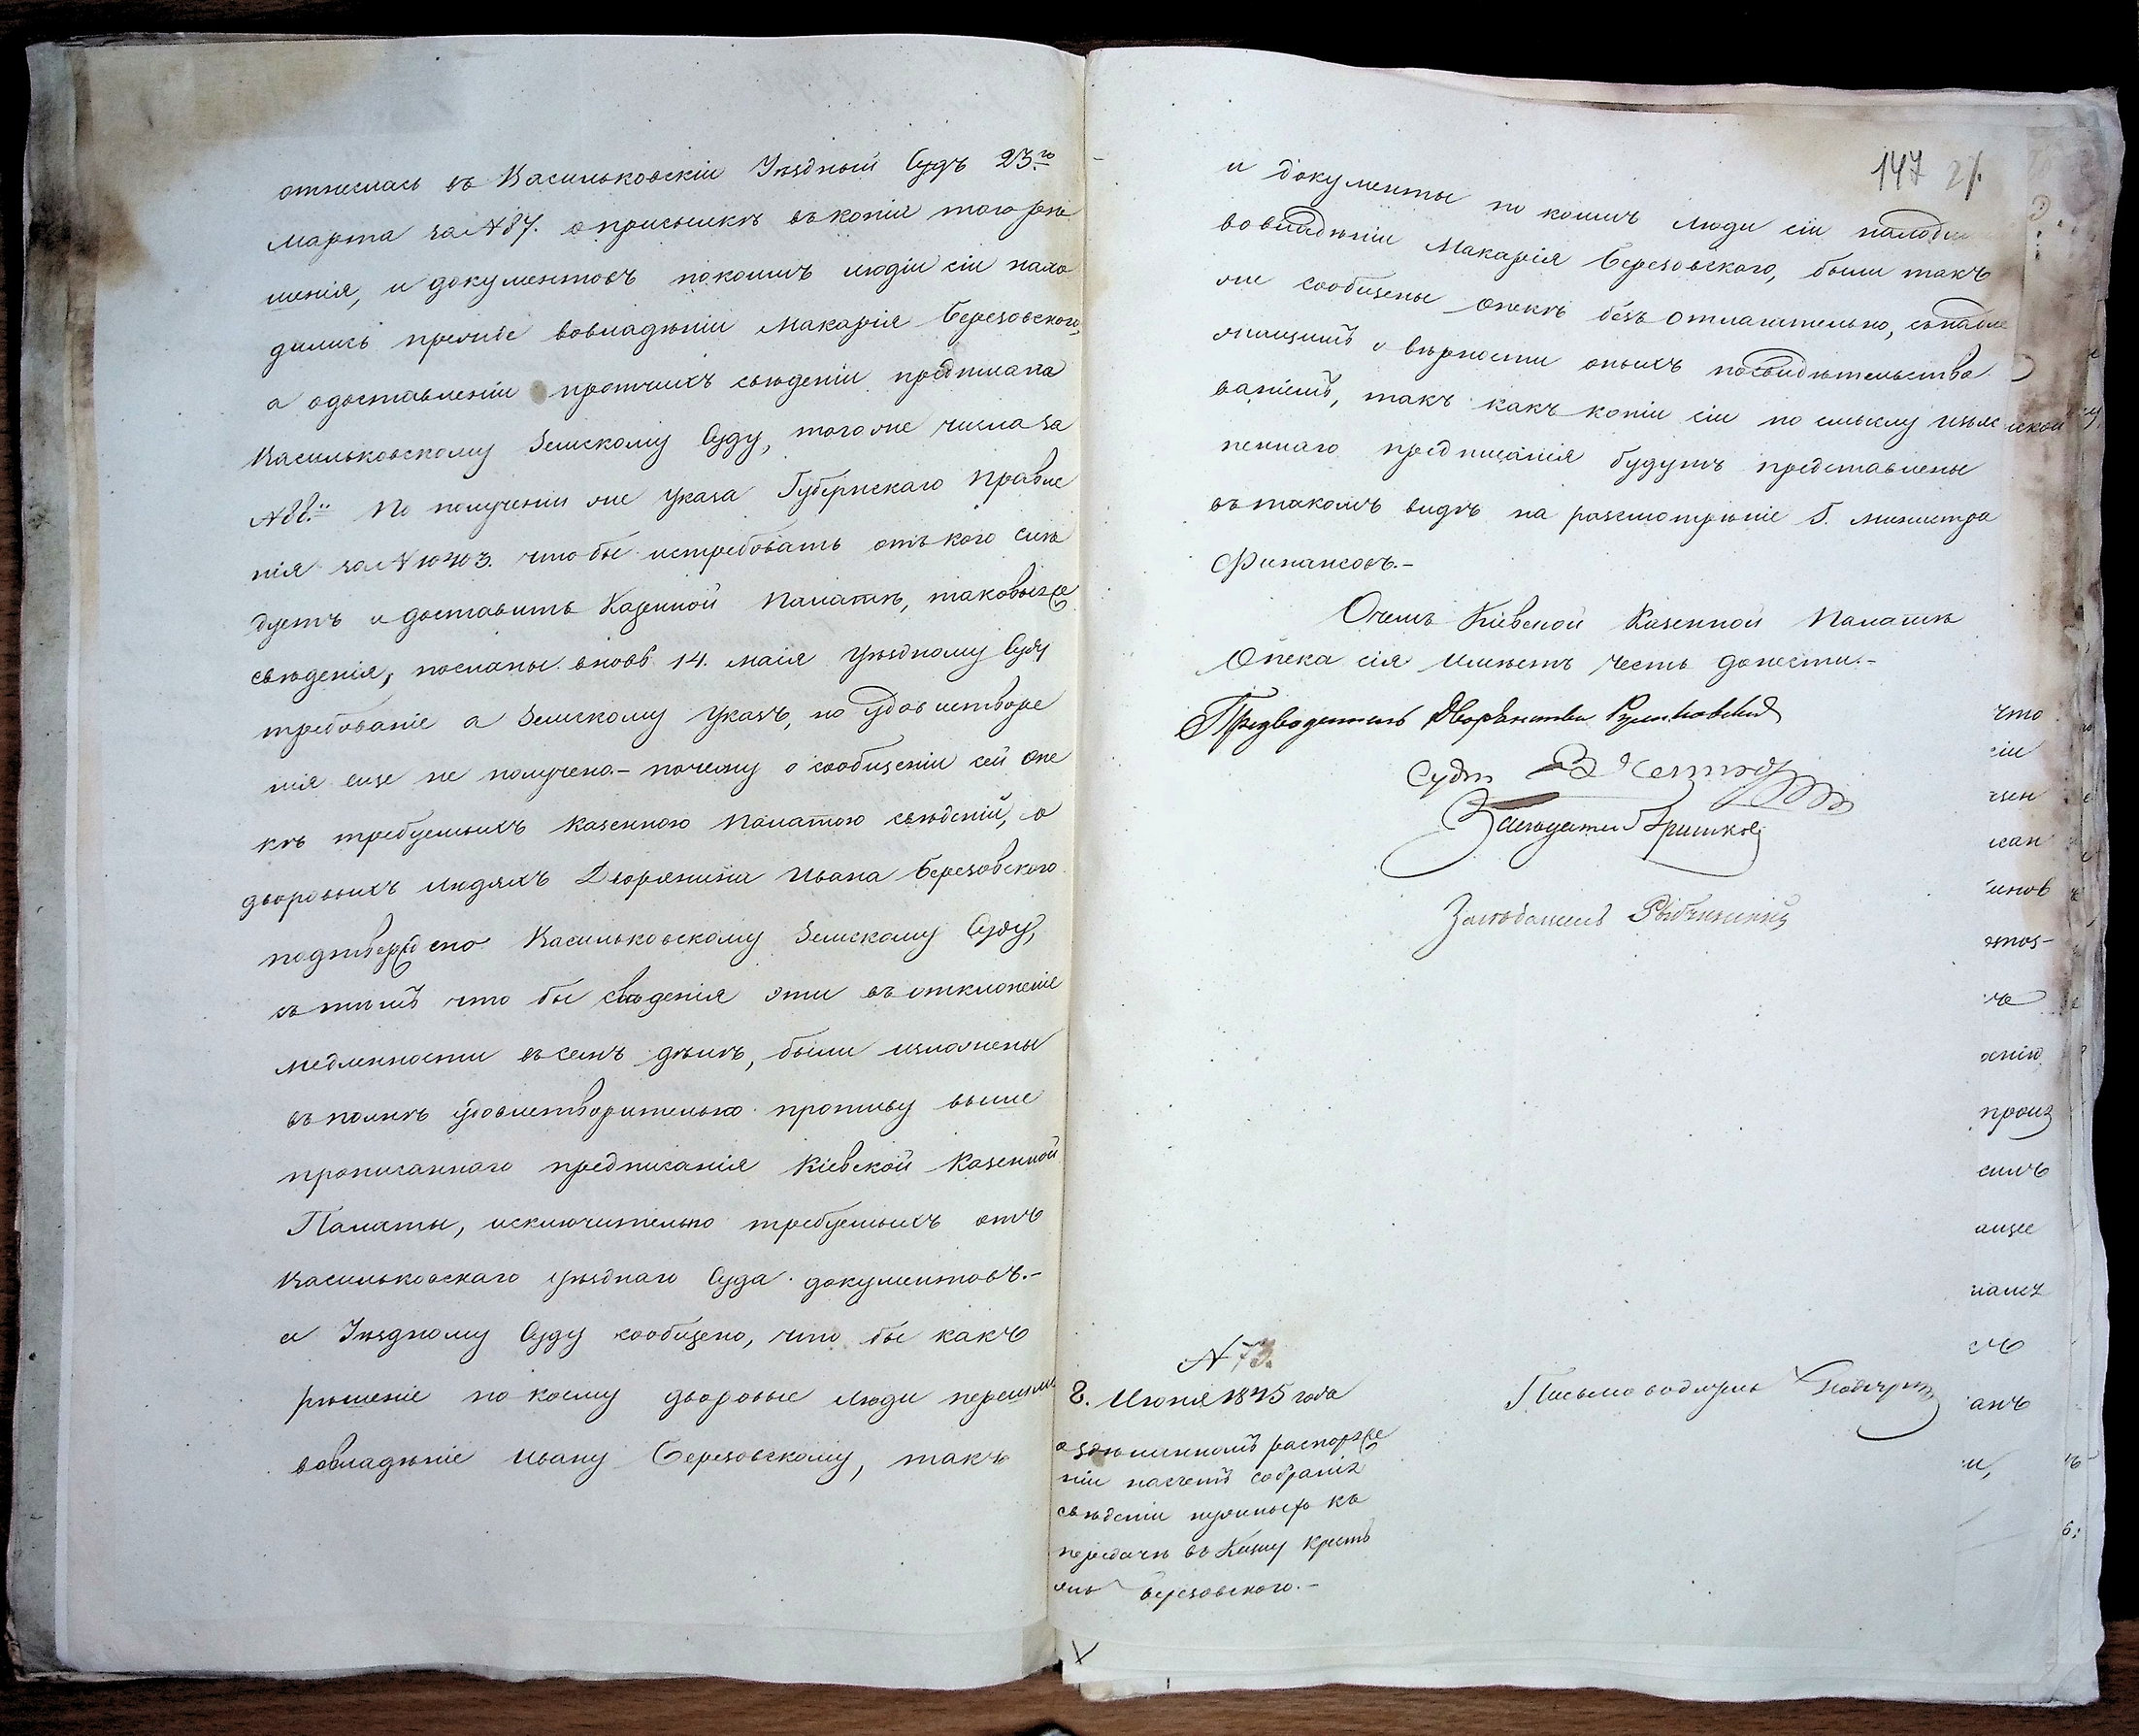 отнеслась въ Васильковскій Уѣздный Судъ 23го
Марта за №87. о присылкѣ въ копіи того рѣ
шенія, и документовъ по коимъ людіи сіи нахо
дились прежде вовладѣніи Макарія Березовского,
а о доставленіи протчихъ сведеніи предписала
Васильковскому Земскому Суду, того же числа за
№88.м По полученіи же указа Губернскаго Правле
нія за №10403. что бы истребовать отъ кого слѣ
дуетъ и доставить Казенной Палатѣ, таковыя же
сведенія, посланы вновь 14. маія Уѣздному Суду
требованіе а Земскому Указъ, но удовлетворе
нія еще не получено.- почему о сообщеніи сей Опе
кѣ требуемыхъ Казенною Палатою сведеній, о
дворовыхъ людяхъ Дворянина Ивана Березовского
подтверждено Васильковскому Земскому Суду,
съ тимъ что бы сведенія эти въ отклоненіе
медленности въ семъ дѣлѣ, были изложены
въ полнѣ удовлетворительно противу выше
прописаннаго предписанія Кіевской Казенной
Палаты, исключительно требуемыхъ отъ
Васильковскаго уѣзднаго Суда документовъ.-
а Уѣздному Суду сообщено, что бы какъ
рѣшеніе по коему дворовые люди перешли
вовладѣніе Ивану Березовскому, такъ
147
и документы по коимъ люди сіи находи
вовладѣніи Макарія Березовского, были такъ
же сообщены Опекѣ безъ отлагательно, съ надле
жащимъ о вѣрности оныхъ посвидѣтельство
ваніемъ, такъ какъ копіи сіи по смыслу изъяс
неннаго предписанія будутъ представлены
въ такомъ видѣ на разсмотрѣніе Г. Министра
Финансовъ.-
Очемъ Кіевской Казенной Палатѣ
Опека сія имѣетъ честь донести.-
Предводитель Дворянства
Судья
Засѣдатель
Засѣдатель
№ 73.
8. Июня 1845 года
о здѣланномъ распоряже
ніи насчетъ собранія
сведеніи нужныхъ къ
передачи въ Казну крестъ
янъ Березовского.-
Письмоводитель